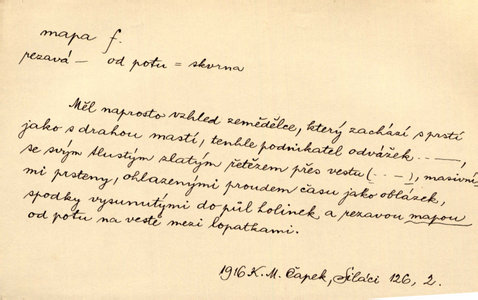 mapa f.
rezavá — od potu = skvrna
Měl naprosto vzhled zemědělce, který zachází s prstí
jako s drahou mastí, tenhle podnikatel odvážek - - — ,
se svým tlustým zlatým řetězem přes vestu (- - —), masivní-
mi prsteny, ohlazenými proudem času jako oblázek,
spodky vysunutými do půl holinek a rezavou mapou
od potu na vestě mezi lopatkami.
1916 K. M. Čapek, Siláci 126, 2.